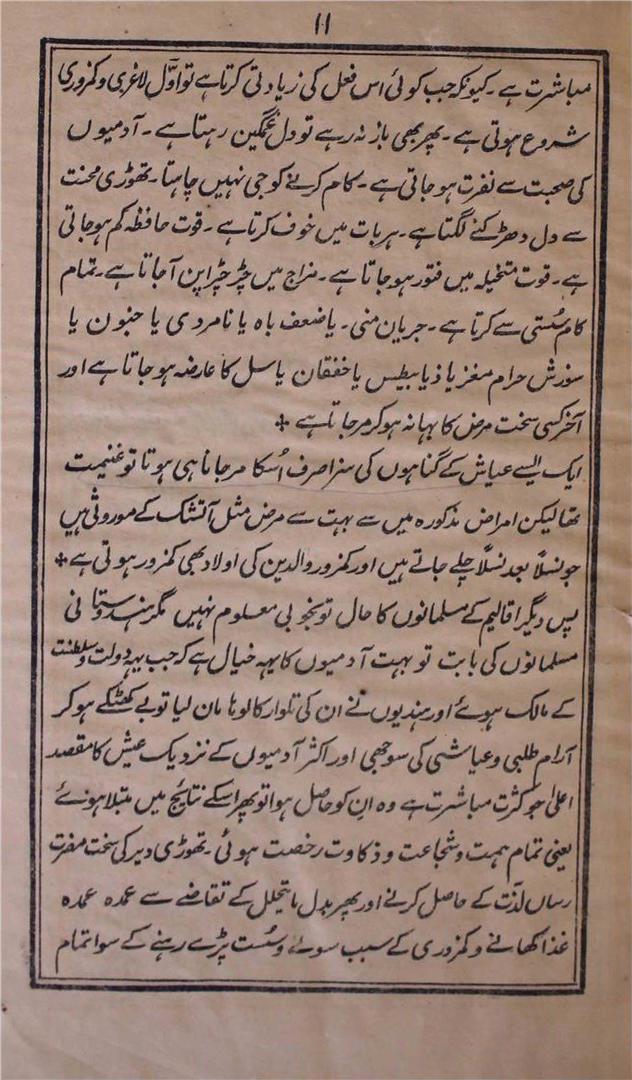 ۱۱
مباشرت ہے۔ کیونکہ جب کوئی اس فعل کی زیادتی کرتا ہے تو اوّل لاغری و کمزوری
شروع ہوتی ہے۔ پھر بھی باز نہ رہے تو دل غمگین رہتا ہے۔ آدمیوں
کی صحبت سے نفرت ہوجاتی ہے۔ کام کرنے کو جی نہیں چاہتا۔ تھوڑی محنت
سے دل دھڑکنے لگتا ہے۔ ہر بات میں خوف کرتا ہے۔ قوت حافظہ کم ہوجاتی
ہے۔ قوت متخیلہ میں فتور ہوجاتا ہے۔ مزاج میں چڑچڑاپن آجاتا ہے۔ تمام
کام سُستی سے کرتا ہے۔ جریان منی۔ یا ضعف باہ یا نامردی یا جنون یا
سوزش حرام مغز یا ذیابیطیس یا خفقان یا سل کا عارضہ ہوجاتا ہے اور
آخر کسی سخت مرض کا بہانہ ہوکر مرجاتا ہے ❖
ایک ایسے عیاش کے گناہوں کی سزا صرف اُسکا مرجانا ہی ہوتا تو غنیمت
تھا لیکن امراض مذکورہ میں سے بہت سے مرض مثل آتشک کے موروثی ہیں
جو نسلاً بعد نسلاً چلے جاتے ہیں اور کمزور والدین کی اولاد بھی کمزور ہوتی ہے ❖
پس دیگر اقالیم کے مسلمانوں کا حال تو بخوبی معلوم نہیں مگر ہندوستانی
مسلمانوں کی بابت تو بہت آدمیوں کا یہہ خیال ہے کہ جب یہہ دولت و سلطنت
کے مالک ہوئے اور ہندیوں نے ان کی تلوار کا لوہا مان لیا تو بے کھٹکے ہوکر
آرام طلبی و عیاشی کی سوجھی اور اکثر آدمیوں کے نزدیک عیش کا مقصد
اعلیٰ جو کثرت مباشرت ہے وہ ان کو حاصل ہوا تو پھر اسکے نتائج میں مبتلا ہوئے
یعنی تمام ہمت و شجاعت و ذکاوت رخصت ہوئی۔ تھوڑی دیر کی سخت مضرت
رساں لذّت کے حاصل کرنے اور پھر بدل ما یتحلل کے تقاضے سے عمدہ عمدہ
غذا کھانے و کمزوری کے سبب سوئے و سُست پڑے رہنے کے سوا تمام